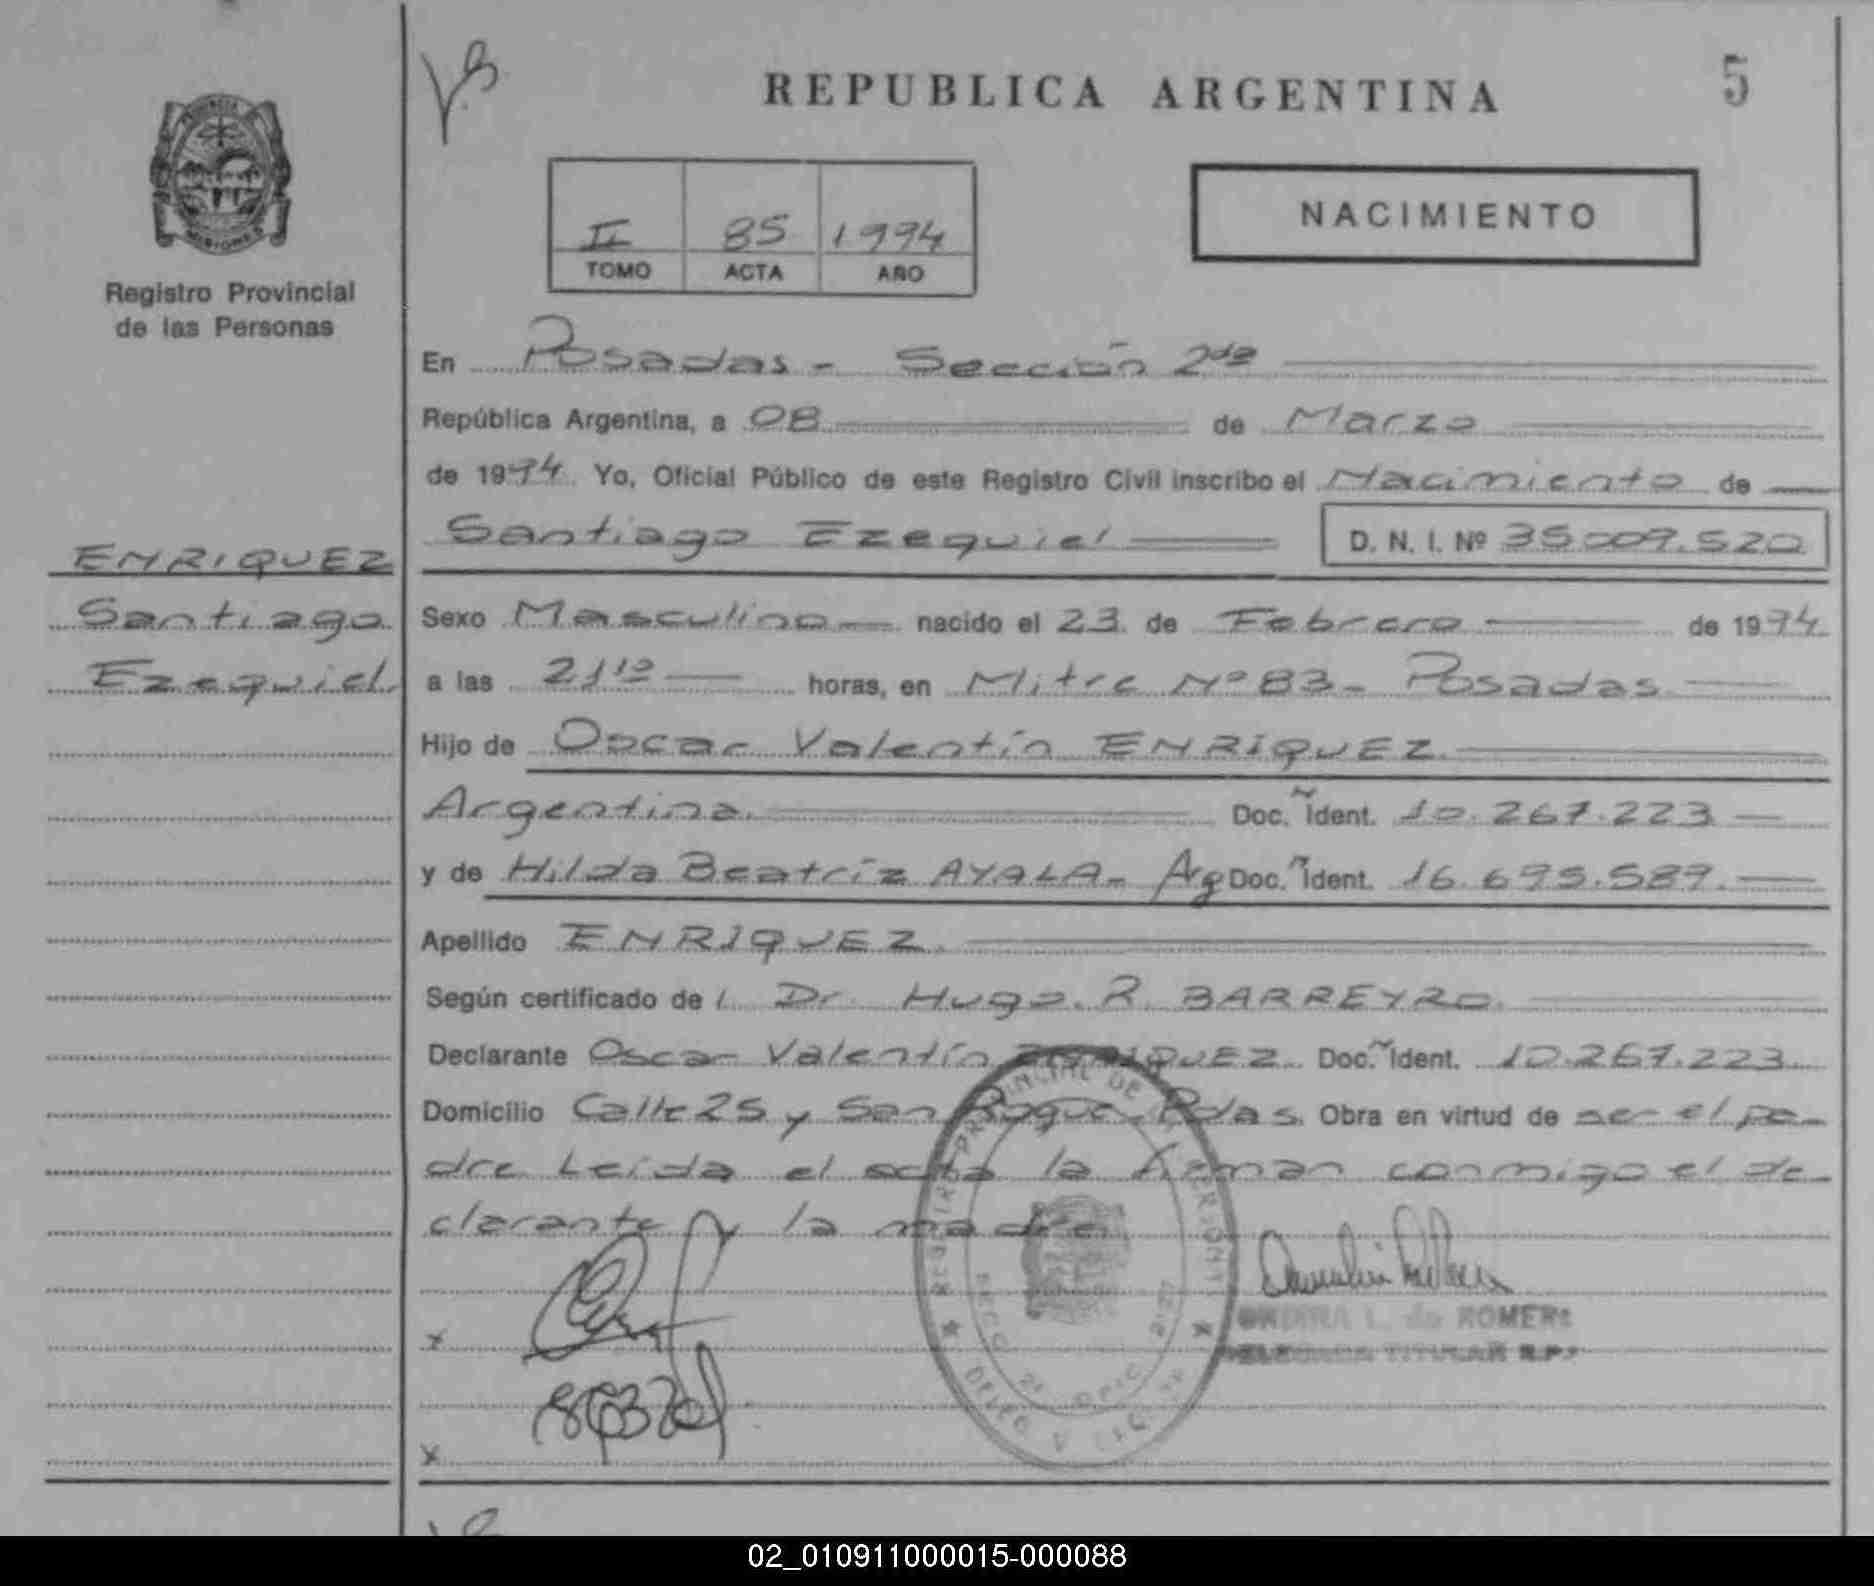 REPUBLICA ARGENTINA
5
PROVINCIA
MISIONES
Registro Provincial
de las Personas
II 85 1994
TOMO ACTA AÑO
NACIMIENTO
En Posadas - Sección 2da
República Argentina, a 08 de Marzo
de 1994. Yo, Oficial Público de este Registro Civil inscribo el Nacimiento de
Santiago Ezequiel D. N. I. Nº 35.009.520
ENRIQUEZ
Santiago
Ezequiel
Sexo Masculino nacido el 23 de Febrero de 1994
a las 21 10 horas, en Mitre Nº 83 - Posadas
Hijo de Oscar Valentín ENRIQUEZ
Argentina. Doc. Ident. 10.267.223
y de Hilda Beatríz AYALA - Arg Doc. Ident. 16.695.589.
Apellido ENRIQUEZ
Según certificado de l Dr. Hugo R. BARREYRO
Declarante Oscar Valentín ENRIQUEZ Doc. Ident. 10.267.223
Domicilio Calle 25 y San Roque - Pdas. Obra en virtud de ser el pa-
dre Leída el acta la firman conmigo el de-
clarante y la madre
x
x
L. de ROMERO
DELEGADA TITULAR R.P.
02_010911000015-000088